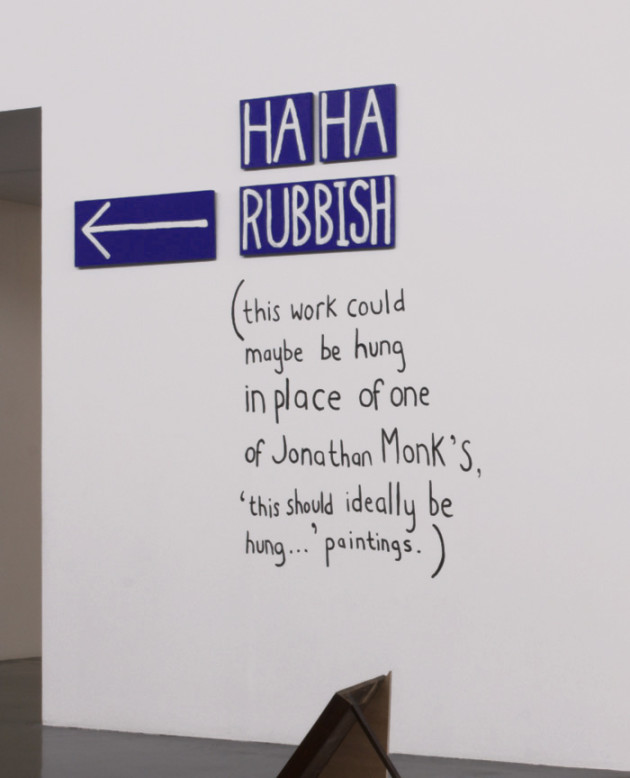 HA HA
RUBBISH
(this work could
maybe be hung
in place of one
of Jonathan Monk's,
'this should ideally be
hung...' paintings.)